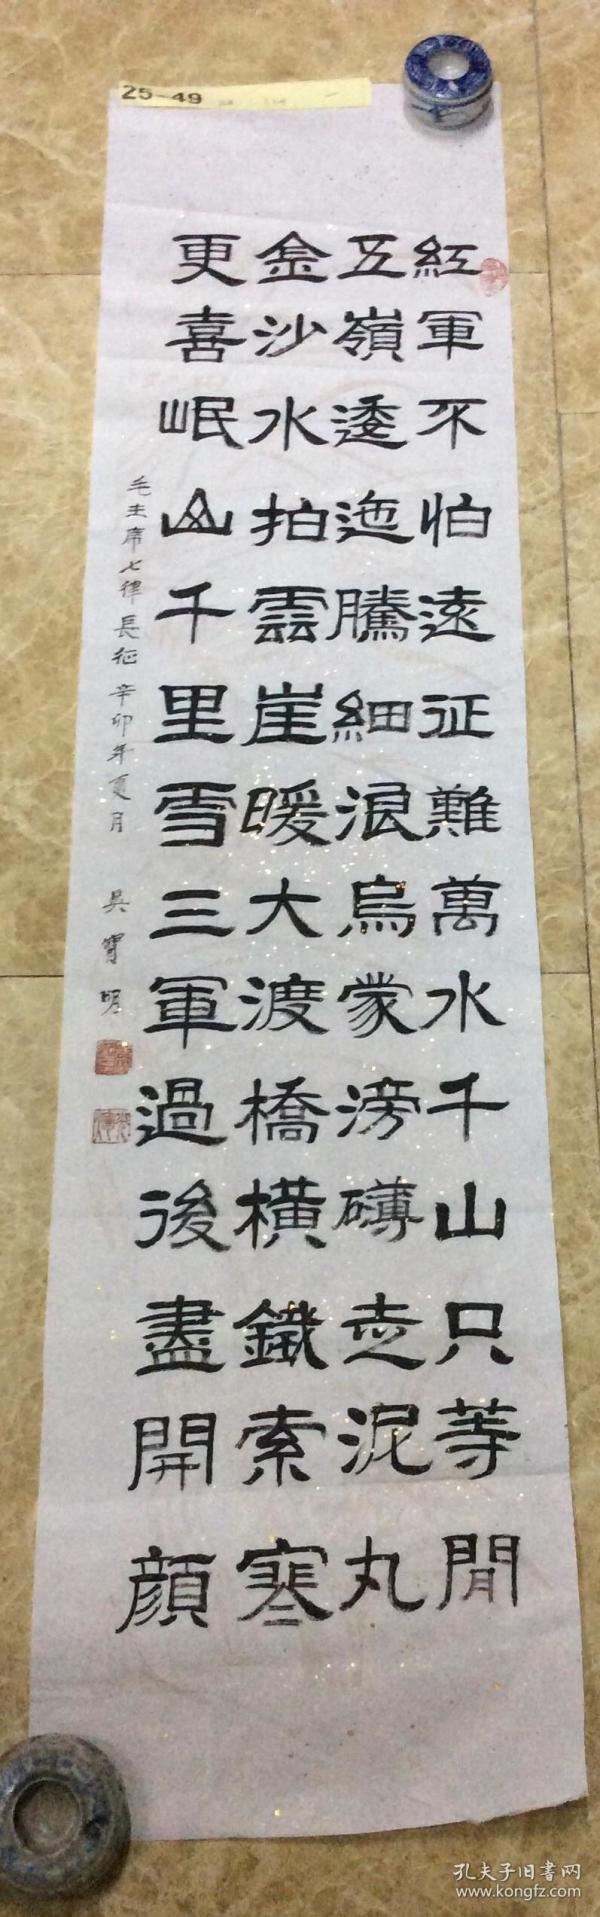 25-49
紅軍不怕遠征難萬水千山只等閒
五嶺逶迤騰細浪烏蒙滂礴走泥丸
金沙水拍雲崖暖大渡橋橫鐵索寒
更喜岷山千里雪三軍過後盡開顔
毛主席七律長征 辛卯年夏月 吴寶明
孔夫子旧書网
www.kongfz.com